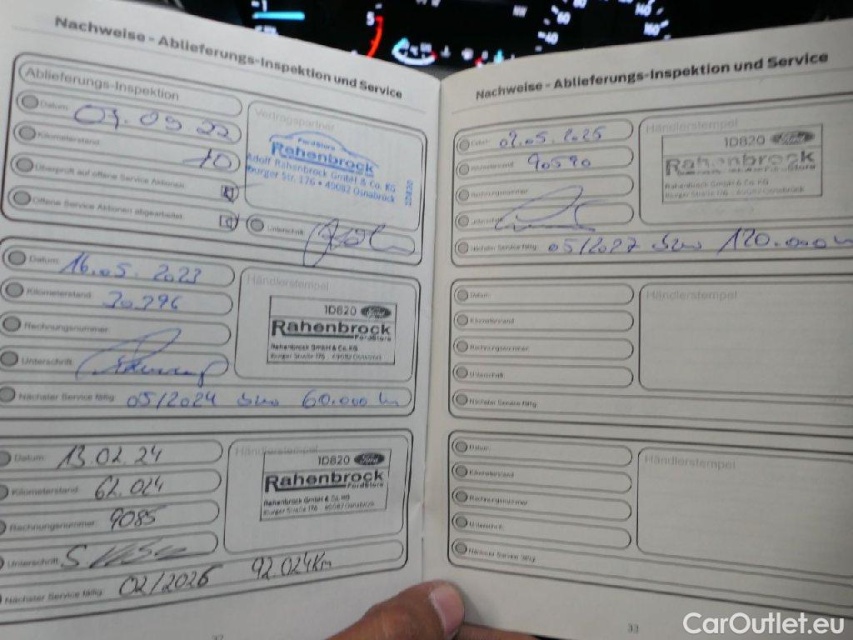 Nachweise - Ablieferungs-Inspektion und Service
Ablieferungs-Inspektion
Datum
Kilometerstand
10
Überprüft auf offene Service Aktionen
Offene Service Aktionen abgearbeitet
Vertragspartner
FordStore
Rahenbrock
Adolf Rahenbrock GmbH & Co. KG
Burger Str. 176 • 49082 Osnabrück
Unterschrift
Datum 16.05.2023
Kilometerstand
Rechnungsnummer
Unterschrift
Nächster Service fällig 05/2024 bzw 60.000 km
Händlerstempel
1D820 Ford
Rahenbrock
FordStore
Burger Straße 176 49082 Osnabrück
Datum 13.02.24
Kilometerstand 62.024
Rechnungsnummer 9085
Unterschrift
Nächster Service fällig 02/2026 92.024Km
Händlerstempel
1D820 Ford
Rahenbrock
FordStore
Rahenbrock GmbH & Co. KG
Burger Straße 176 49082 Osnabrück
Nachweise - Ablieferungs-Inspektion und Service
Datum 02.05.2025
Kilometerstand 90590
Rechnungsnummer
Unterschrift
Nächster Service fällig 05/2027 bzw 120.000 km
Händlerstempel
1D820 Ford
Rahenbrock
Datum
Kilometerstand
Rechnungsnummer
Unterschrift
Nächster Service fällig
Händlerstempel
Datum
Kilometerstand
Rechnungsnummer
Unterschrift
Nächster Service fällig
Händlerstempel
33
CarOutlet.eu